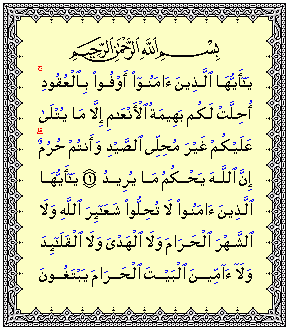 بِسْمِ ٱللَّهِ ٱلرَّحْمَٰنِ ٱلرَّحِيمِ
يَٰٓأَيُّهَا ٱلَّذِينَ ءَامَنُوٓا۟ أَوْفُوا۟ بِٱلْعُقُودِ ۚ
أُحِلَّتْ لَكُم بَهِيمَةُ ٱلْأَنْعَٰمِ إِلَّا مَا يُتْلَىٰ
عَلَيْكُمْ غَيْرَ مُحِلِّى ٱلصَّيْدِ وَأَنتُمْ حُرُمٌ ۗ
إِنَّ ٱللَّهَ يَحْكُمُ مَا يُرِيدُ ١ يَٰٓأَيُّهَا
ٱلَّذِينَ ءَامَنُوا۟ لَا تُحِلُّوا۟ شَعَٰٓئِرَ ٱللَّهِ وَلَا
ٱلشَّهْرَ ٱلْحَرَامَ وَلَا ٱلْهَدْىَ وَلَا ٱلْقَلَٰٓئِدَ
وَلَآ ءَآمِّينَ ٱلْبَيْتَ ٱلْحَرَامَ يَبْتَغُونَ